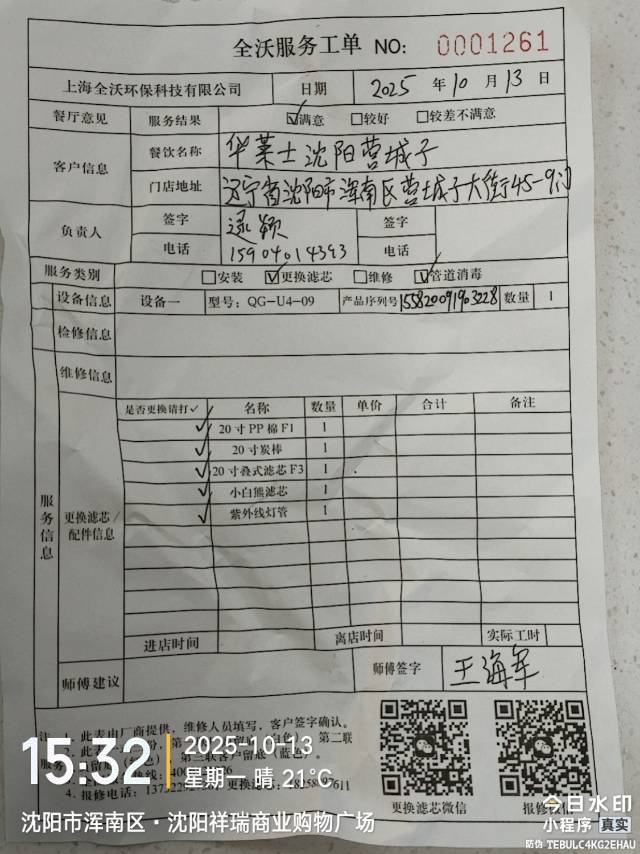 全沃服务工单 NO: 0001261
上海全沃环保科技有限公司 日期 2025 年 10 月 13 日
餐厅意见 服务结果 ☑满意 ☐较好 ☐较差不满意
客户信息 餐饮名称 华莱士沈阳营城子
门店地址 辽宁省沈阳市浑南区营城子大街45-9门
负责人 签字 签字
电话 15904014393 电话
服务类别 ☐安装 ☑更换滤芯 ☐维修 ☑管道消毒
设备信息 设备一 型号: QG-U4-09 产品序列号 155820091903228 数量 1
检修信息
维修信息
服务信息
更换滤芯/配件信息
是否更换请打✓ 名称 数量 单价 合计 备注
✓ 20寸PP棉F1 1
✓ 20寸炭棒 1
✓ 20寸叠式滤芯F3 1
✓ 小白熊滤芯 1
✓ 紫外线灯管 1
进店时间 离店时间 实际工时
师傅建议 师傅签字 王海军
此表由厂商提供，维修人员填写，客户签字确认。
第二联
第三联客户留底（蓝色）。
4. 报修电话:
更换滤芯微信 报修微信
15:32
2025-10-13
星期一 晴 21°C
沈阳市浑南区·沈阳祥瑞商业购物广场
今日水印
小程序 真实
防伪 TEBULC4KG2EHAU